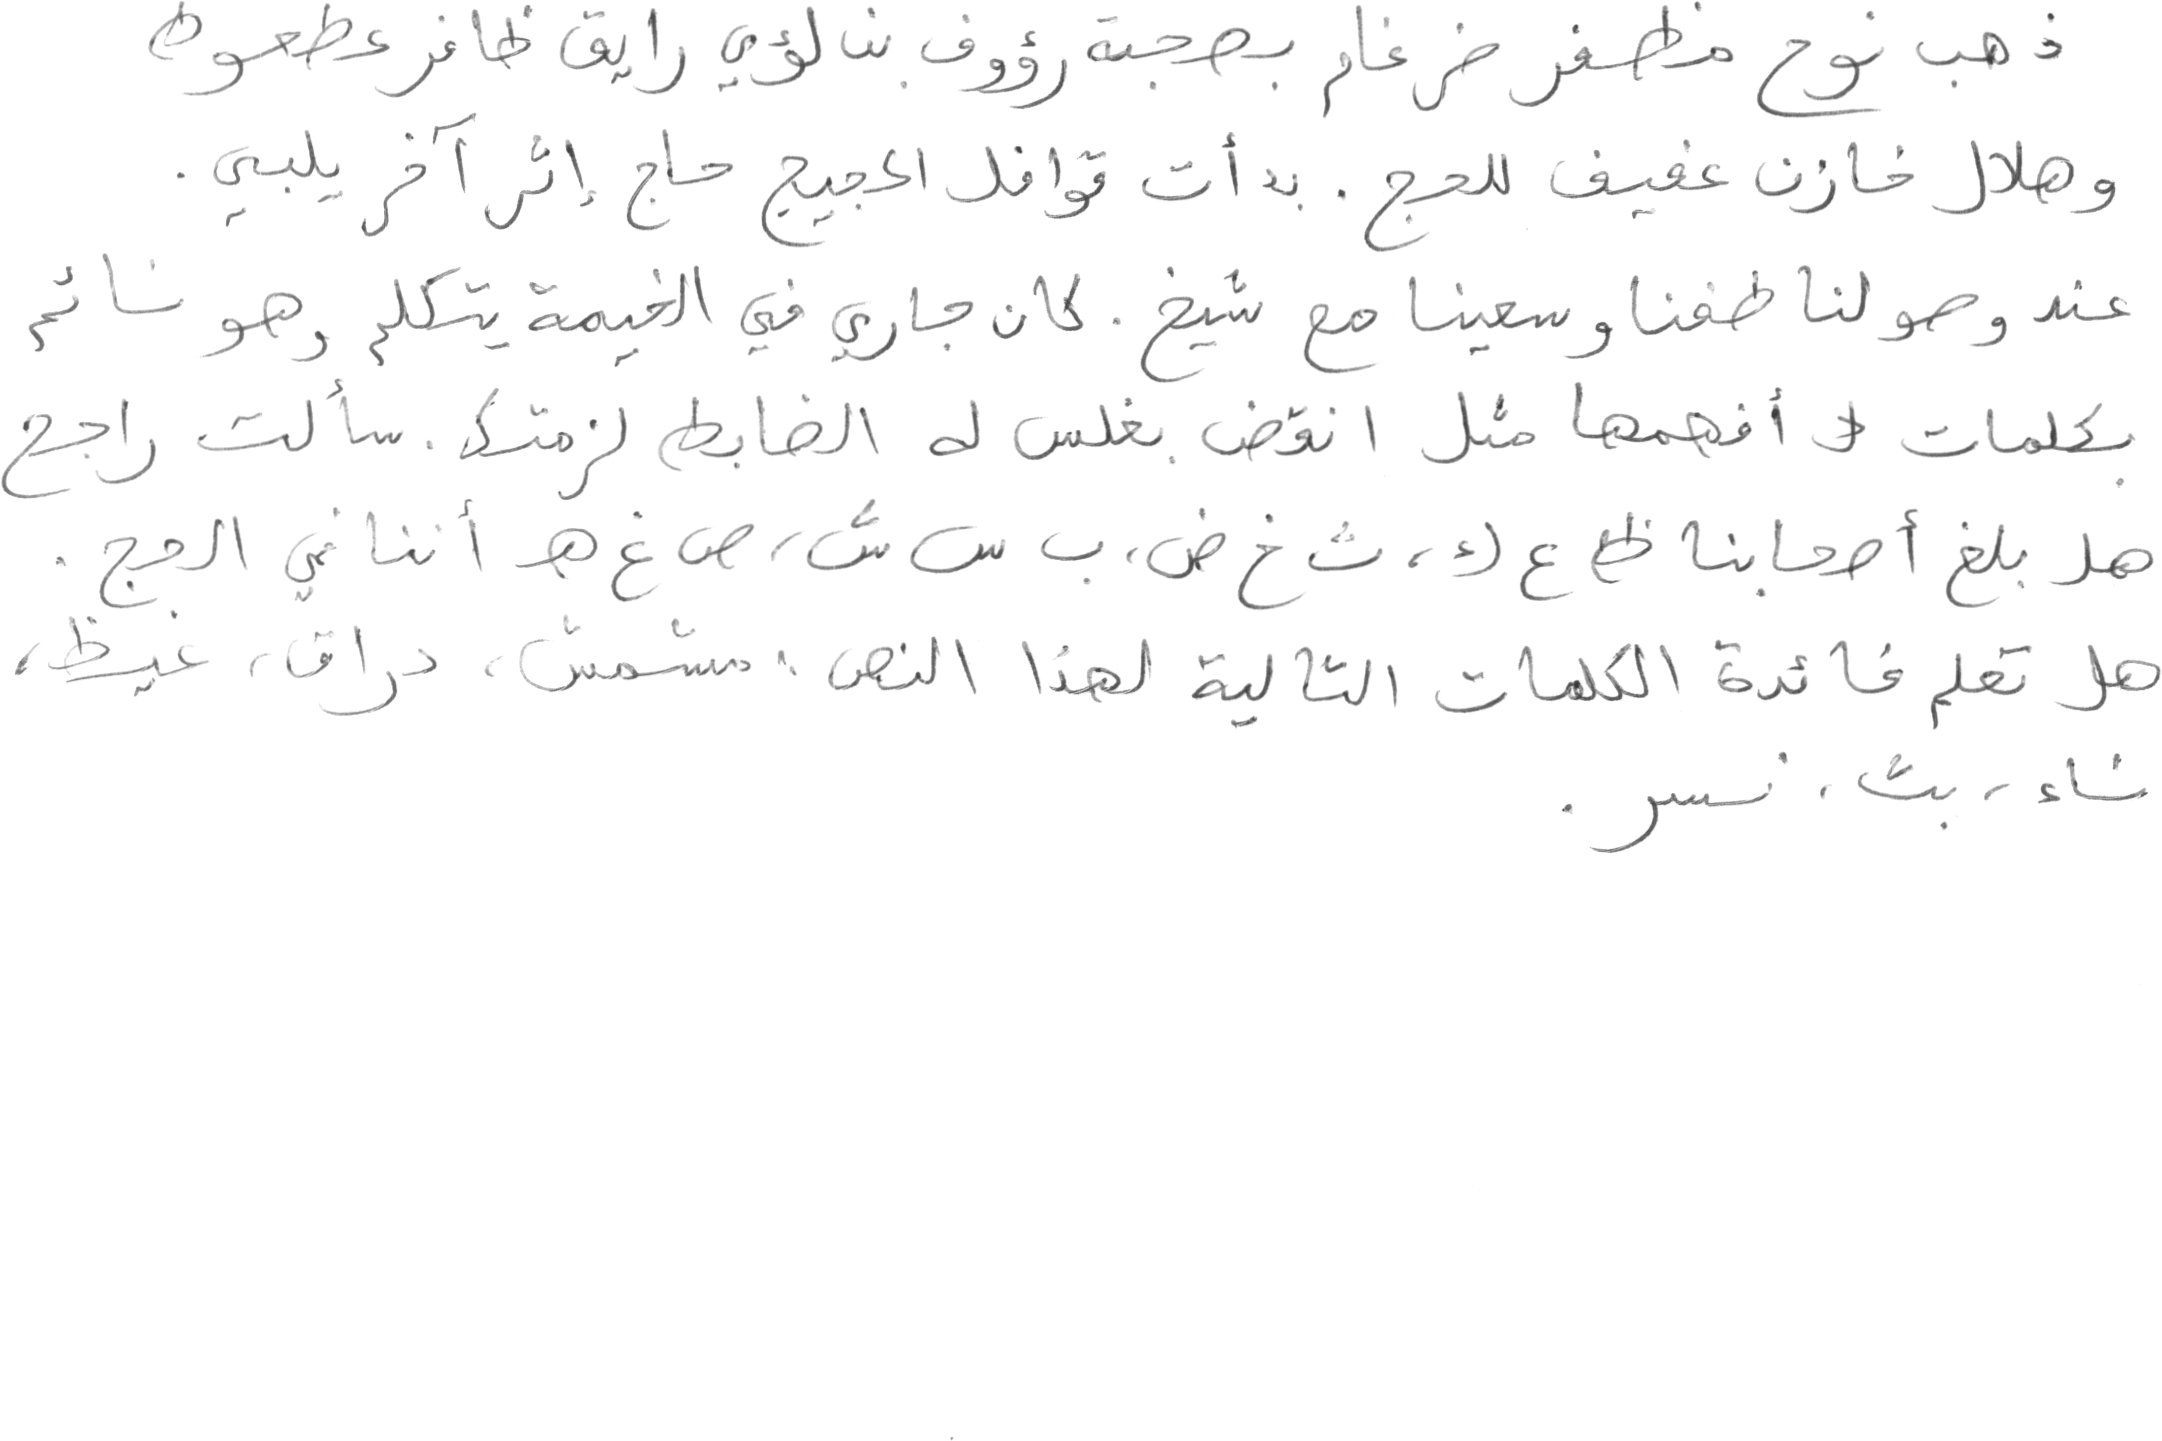 ذهب نوح مظفر ضرغام بصحبة رؤوف بن لؤي رايق ظافر عطعوط
وهلال خازن عفيف للحج . بدأت قوافل الحجيج حاج إثر آخر يلبي .
عند وصولنا طفنا وسعينا مع شيخ . كان جاري في الخيمة يتكلم وهو نائم
بكلمات لا أفهمها مثل انقض بغلس له الضابط لزمتك . سألت راجح
هل بلغ أصحابنا ظ ع ك ، ث خ ض ، ب س ش ، ص غ هـ أننا في الحج .
هل تعلم فائدة الكلمات التالية لهذا النص : مشمش ، دراق ، غيظ ،
شاء ، بث ، نسر .